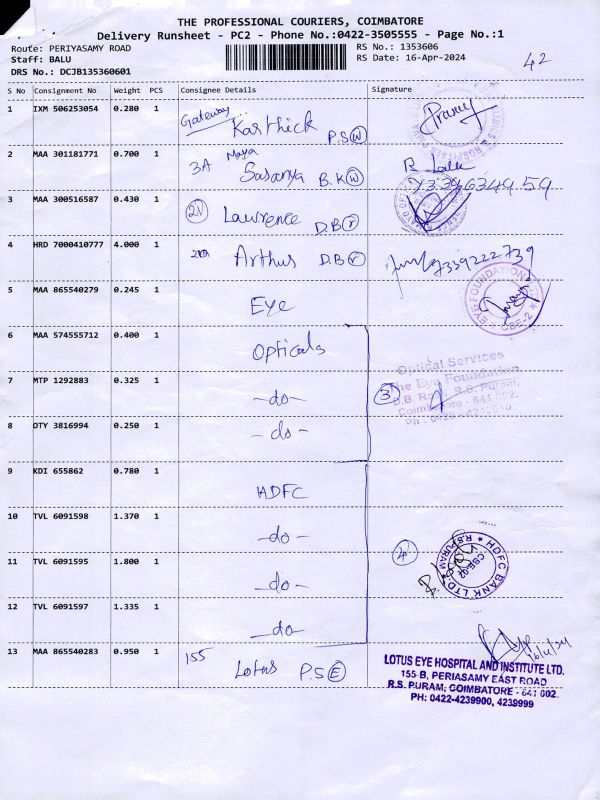 THE PROFESSIONAL COURIERS, COIMBATORE
Delivery Runsheet - PC2 - Phone No.:0422-3505555 - Page No.:1
Route: PERIYASAMY ROAD
Staff: BALU
DRS No.: DCJB135360601
RS No.: 1353606
RS Date: 16-Apr-2024
42
S No Consignment No Weight PCS Consignee Details Signature
1 IXM 506253054 0.280 1 Gateway Karthick P.S W
2 MAA 301181771 0.700 1 3A Maya Sasanya B.K W
R
3 MAA 300516587 0.430 1 2N Lawrence D.B r
4 HRD 7000410777 4.000 1 Arthus D.B r
7339222739
EYE FOUNDATION
CBE-2
5 MAA 865540279 0.245 1 Eye
6 MAA 574555712 0.400 1 Opticals
Optical Services
The Eye Foundation
D.B. Road, R.S. Puram,
Coimbatore - 641 002.
7 MTP 1292883 0.325 1 -do- 3
8 OTY 3816994 0.250 1 -do-
9 KDI 655862 0.780 1 HDFC
10 TVL 6091598 1.370 1 -do-
HDFC BANK LTD
R.S.PURAM
CBE-02
11 TVL 6091595 1.800 1 -do- 4
12 TVL 6091597 1.335 1 -do-
13 MAA 865540283 0.950 1 155 Lotus P.S E
16/4/24
LOTUS EYE HOSPITAL AND INSTITUTE LTD.
155-B, PERIASAMY EAST ROAD
R.S. PURAM, COIMBATORE - 641 002.
PH: 0422-4239900, 4239999